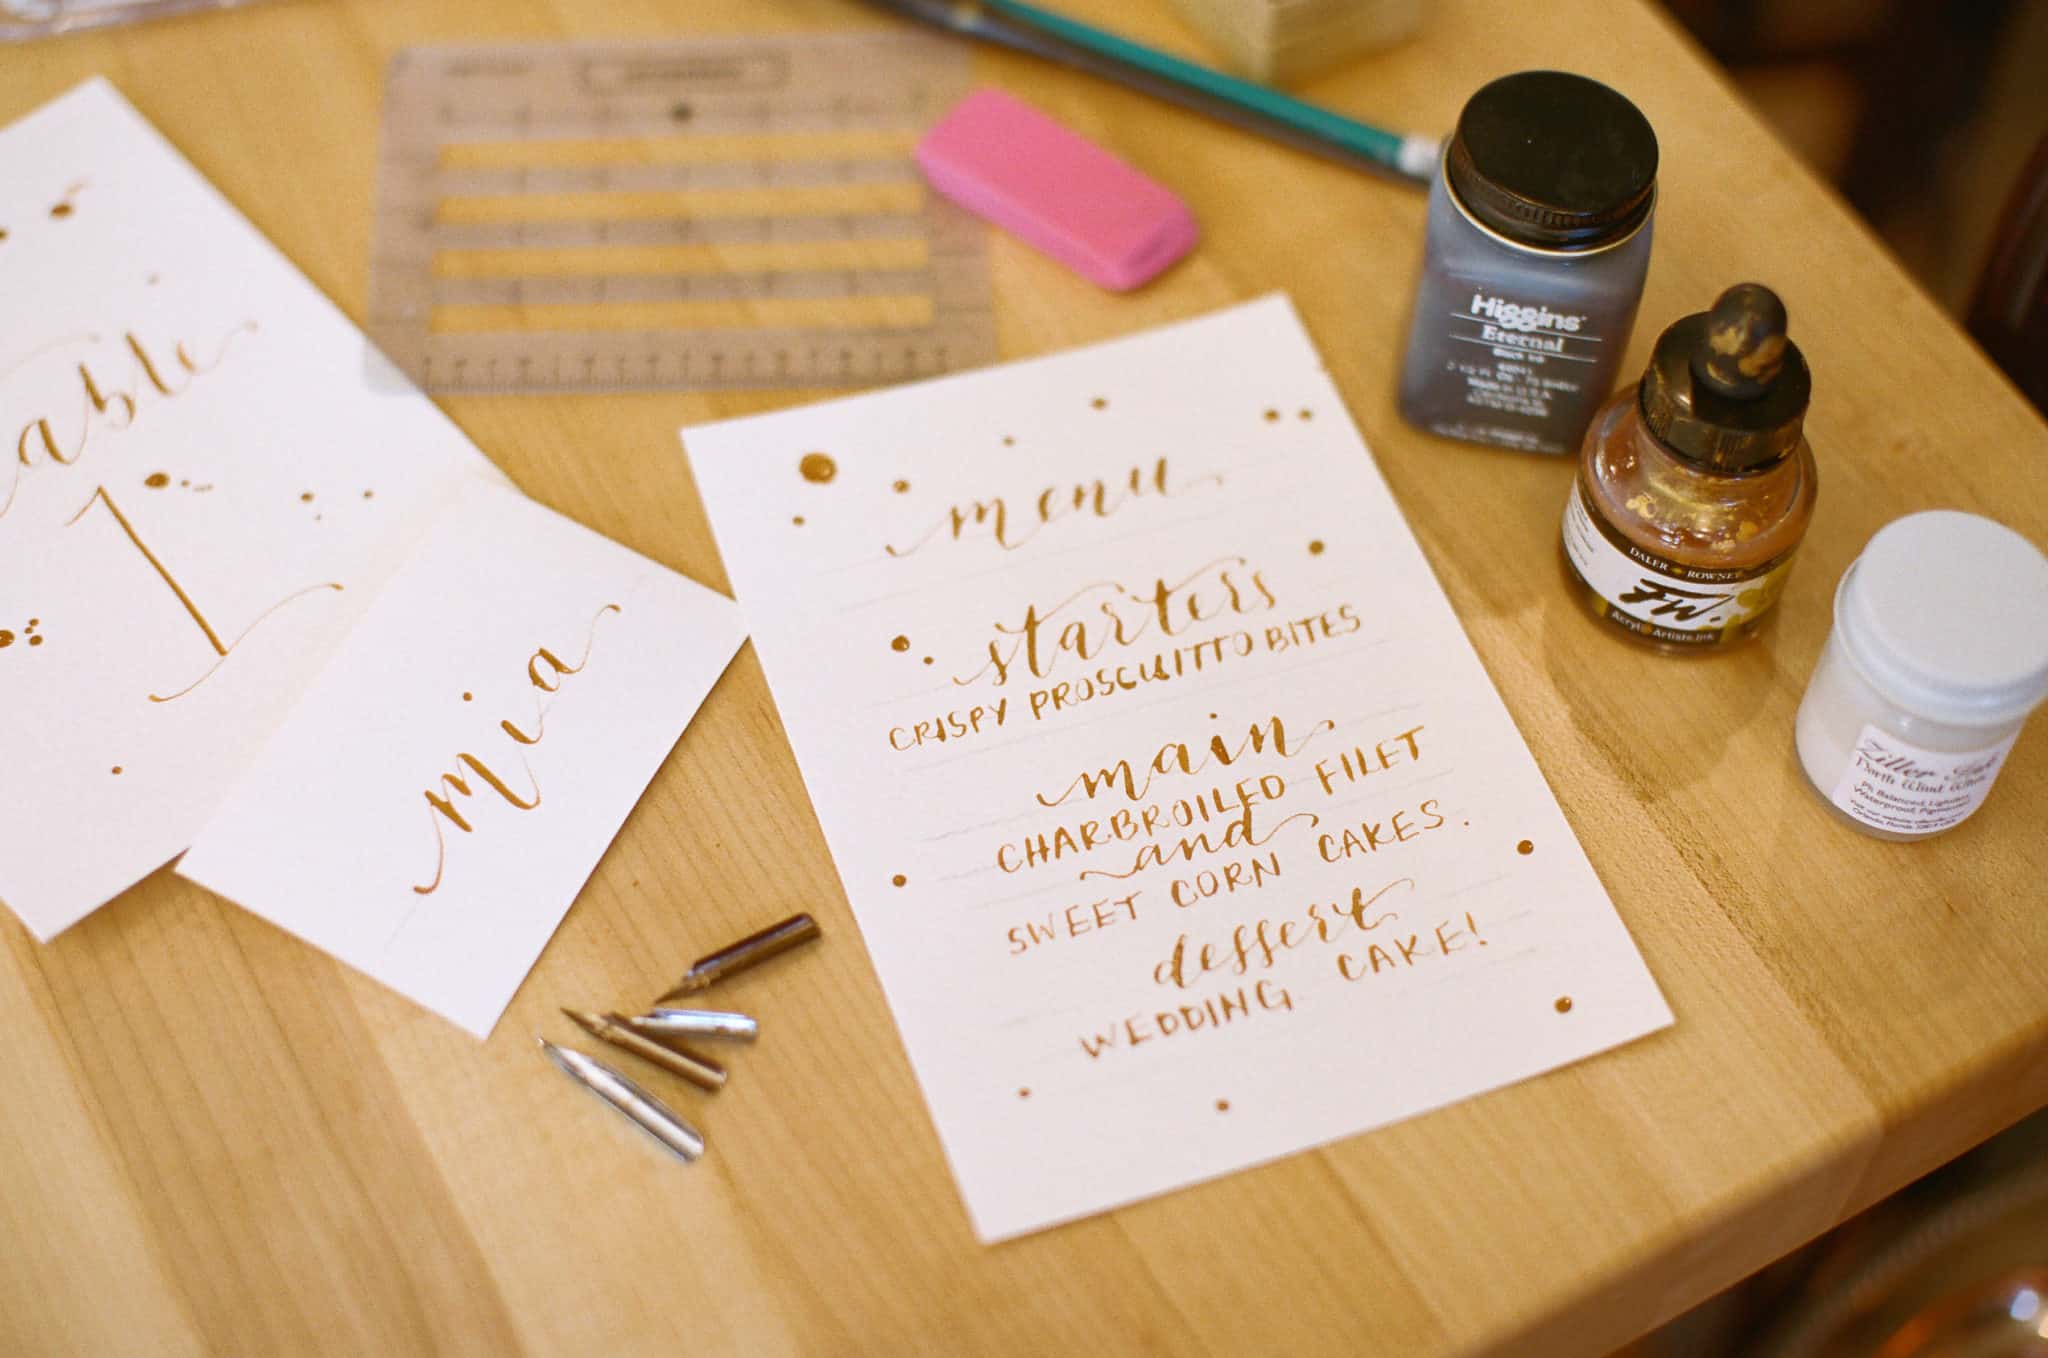 able
1
mia
menu
starters
CRISPY PROSCUITTO BITES
main
CHARBROILED FILET
and
SWEET CORN CAKES.
dessert
WEDDING CAKE!
Higgins
Eternal
Black Ink
Made in U.S.A.
DALER ROWNEY
FW.
Acrylic Artists Ink
Ziller
North Wind White
Waterproof, Pigmented